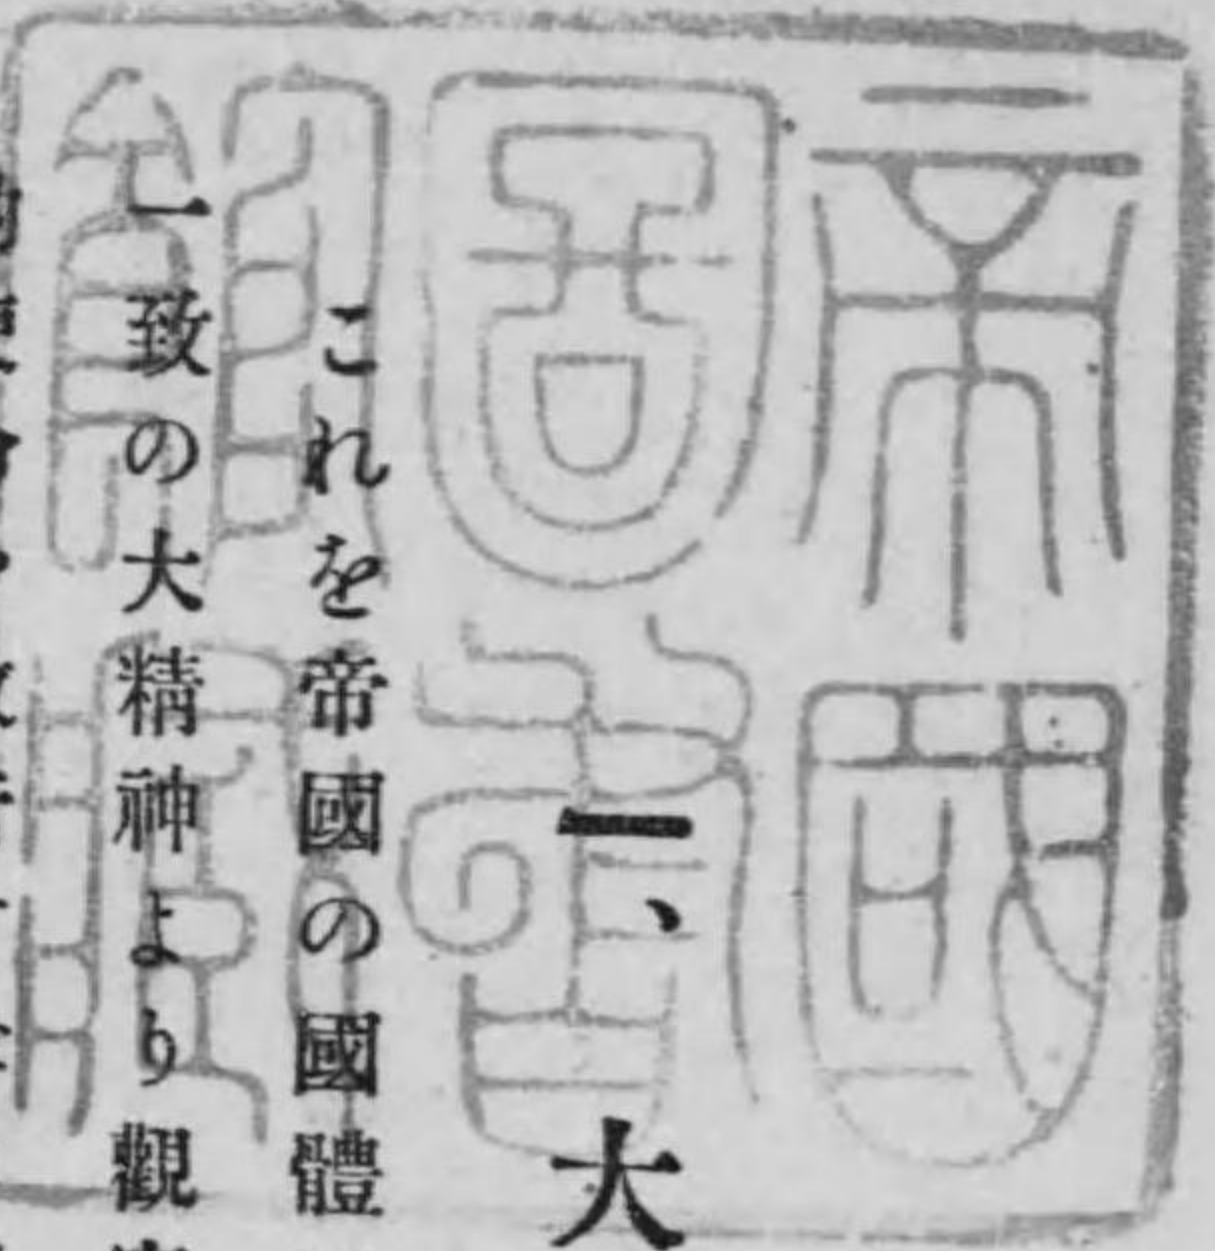 帝國
圖書
館藏
一、大
これを帝國の國體
一致の大精神より觀